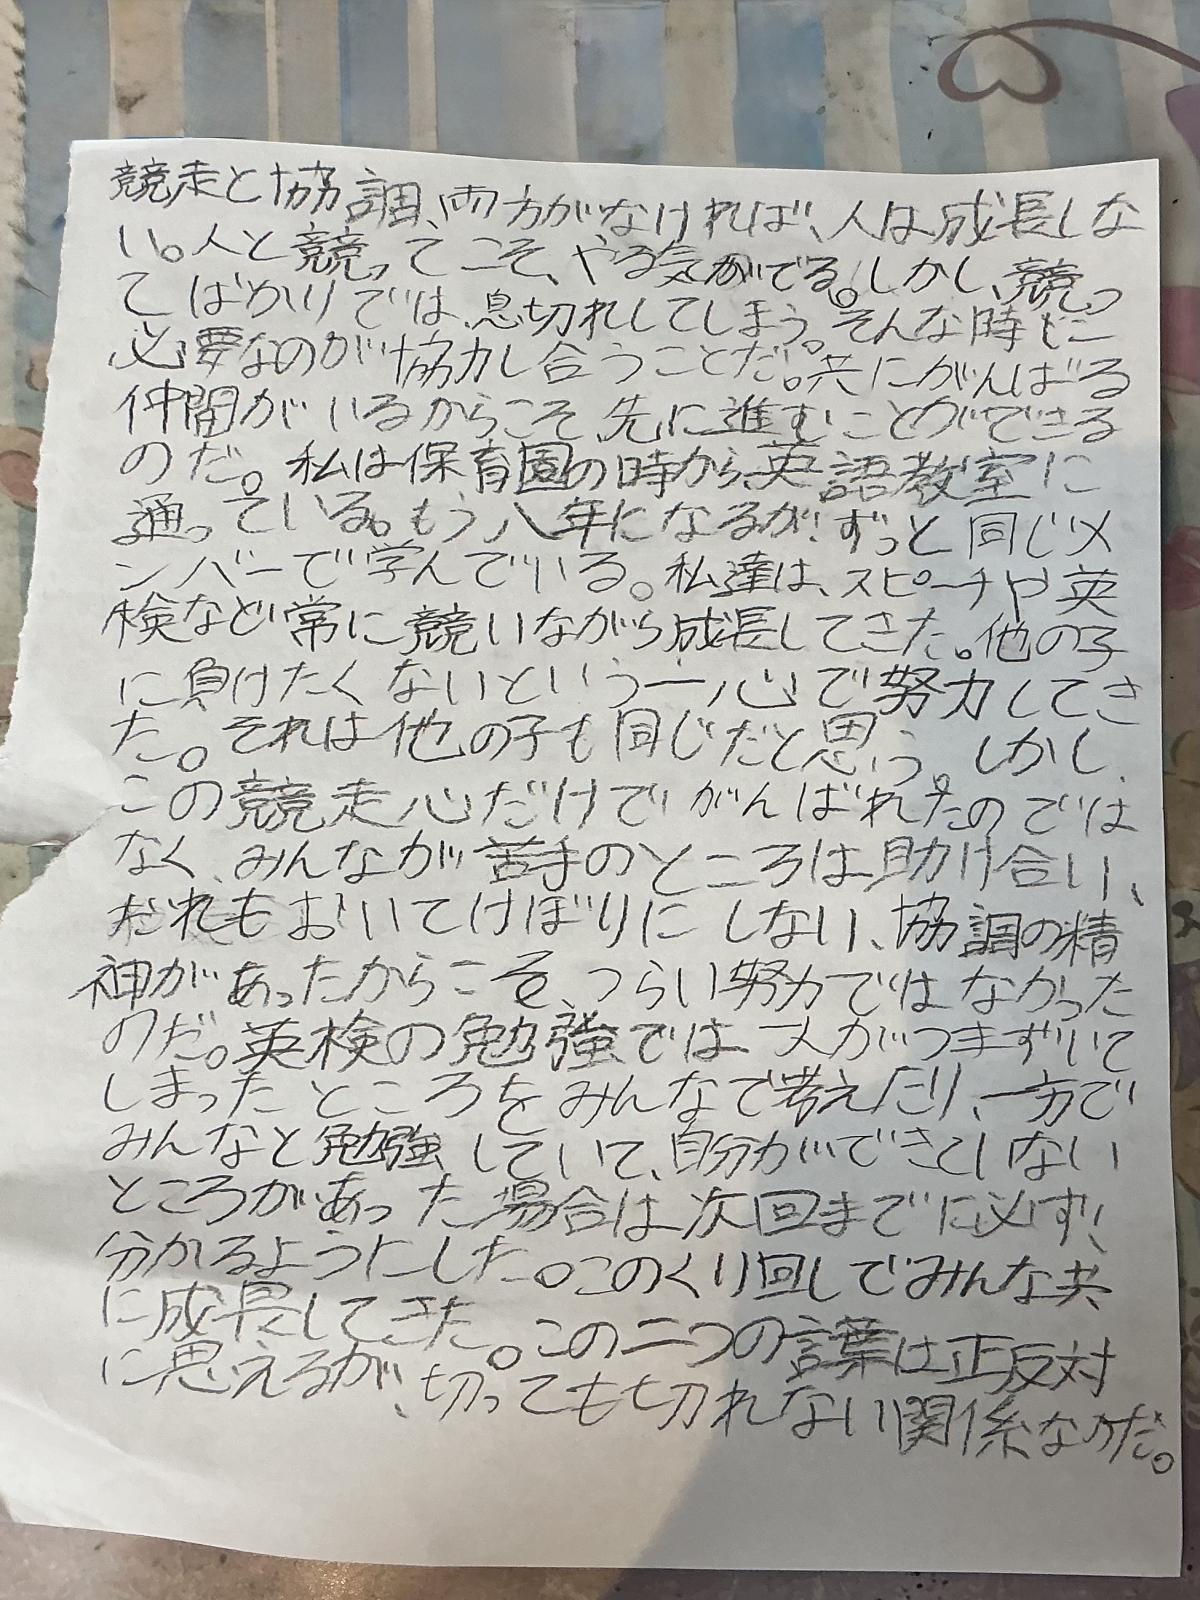 競走と協調、両方がなければ、人は成長しな
い。人と競ってこそ、やる気がでる。しかし、競っ
てばかりでは、息切れしてしまう。そんな時に
必要なのが協力し合うことだ。共にがんばる
仲間がいるからこそ、先に進むことができる
のだ。私は保育園の時から、英語教室に
通っている。もう八年になるが、ずっと同じメ
ンバーで学んでいる。私達は、スピーチや英
検など常に競いながら成長してきた。他の子
に負けたくないという一心で努力してき
た。それは他の子も同じだと思う。しかし、
この競走心だけでがんばれたのでは
なく、みんなが苦手のところは助け合い、
だれもおいてけぼりにしない、協調の精
神があったからこそ、つらい努力ではなかった
のだ。英検の勉強では一人がつまずいて
しまったところをみんなで考えたり、一方で
みんなと勉強していて、自分ができていない
ところがあった場合は次回までに必ず、
分かるようにした。このくり回しでみんな共
に成長してきた。この二つの言葉は正反対
に思えるが、切っても切れない関係なのだ。